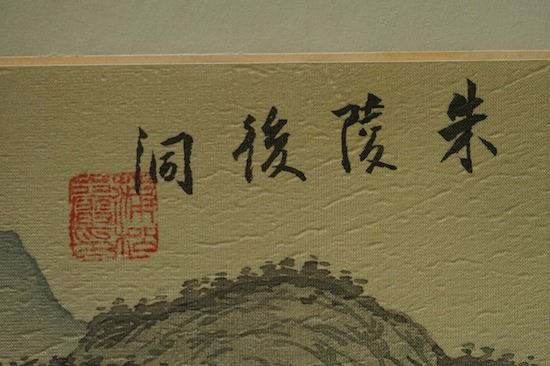 朱陵後洞